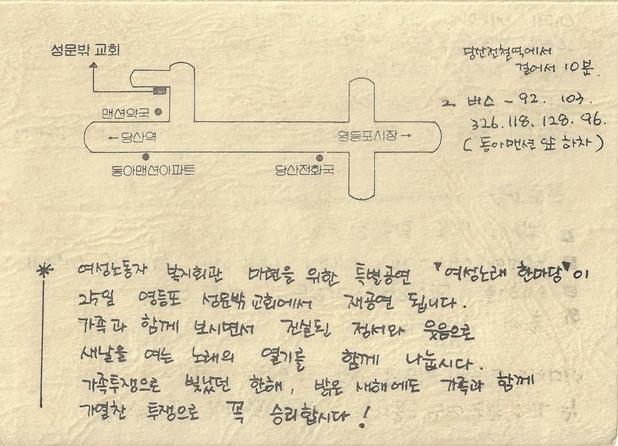 성문밖 교회
당산전철역에서
걸어서 10분.
맨션약국
2. 버스 - 92. 103.
326. 118. 128. 96.
(동아맨션 앞 하차)
← 당산역
영등포시장 →
동아맨션아파트
당산전화국
* 여성노동자 복지회관 마련을 위한 특별공연 "여성노래 한마당"이
25일 영등포 성문밖 교회에서 재공연 됩니다.
가족과 함께 보시면서 진실된 정서와 웃음으로
새날을 여는 노래의 열기를 함께 나눕시다.
가족투쟁으로 빛났던 한해, 밝은 새해에도 가족과 함께
가열찬 투쟁으로 꼭 승리합시다!